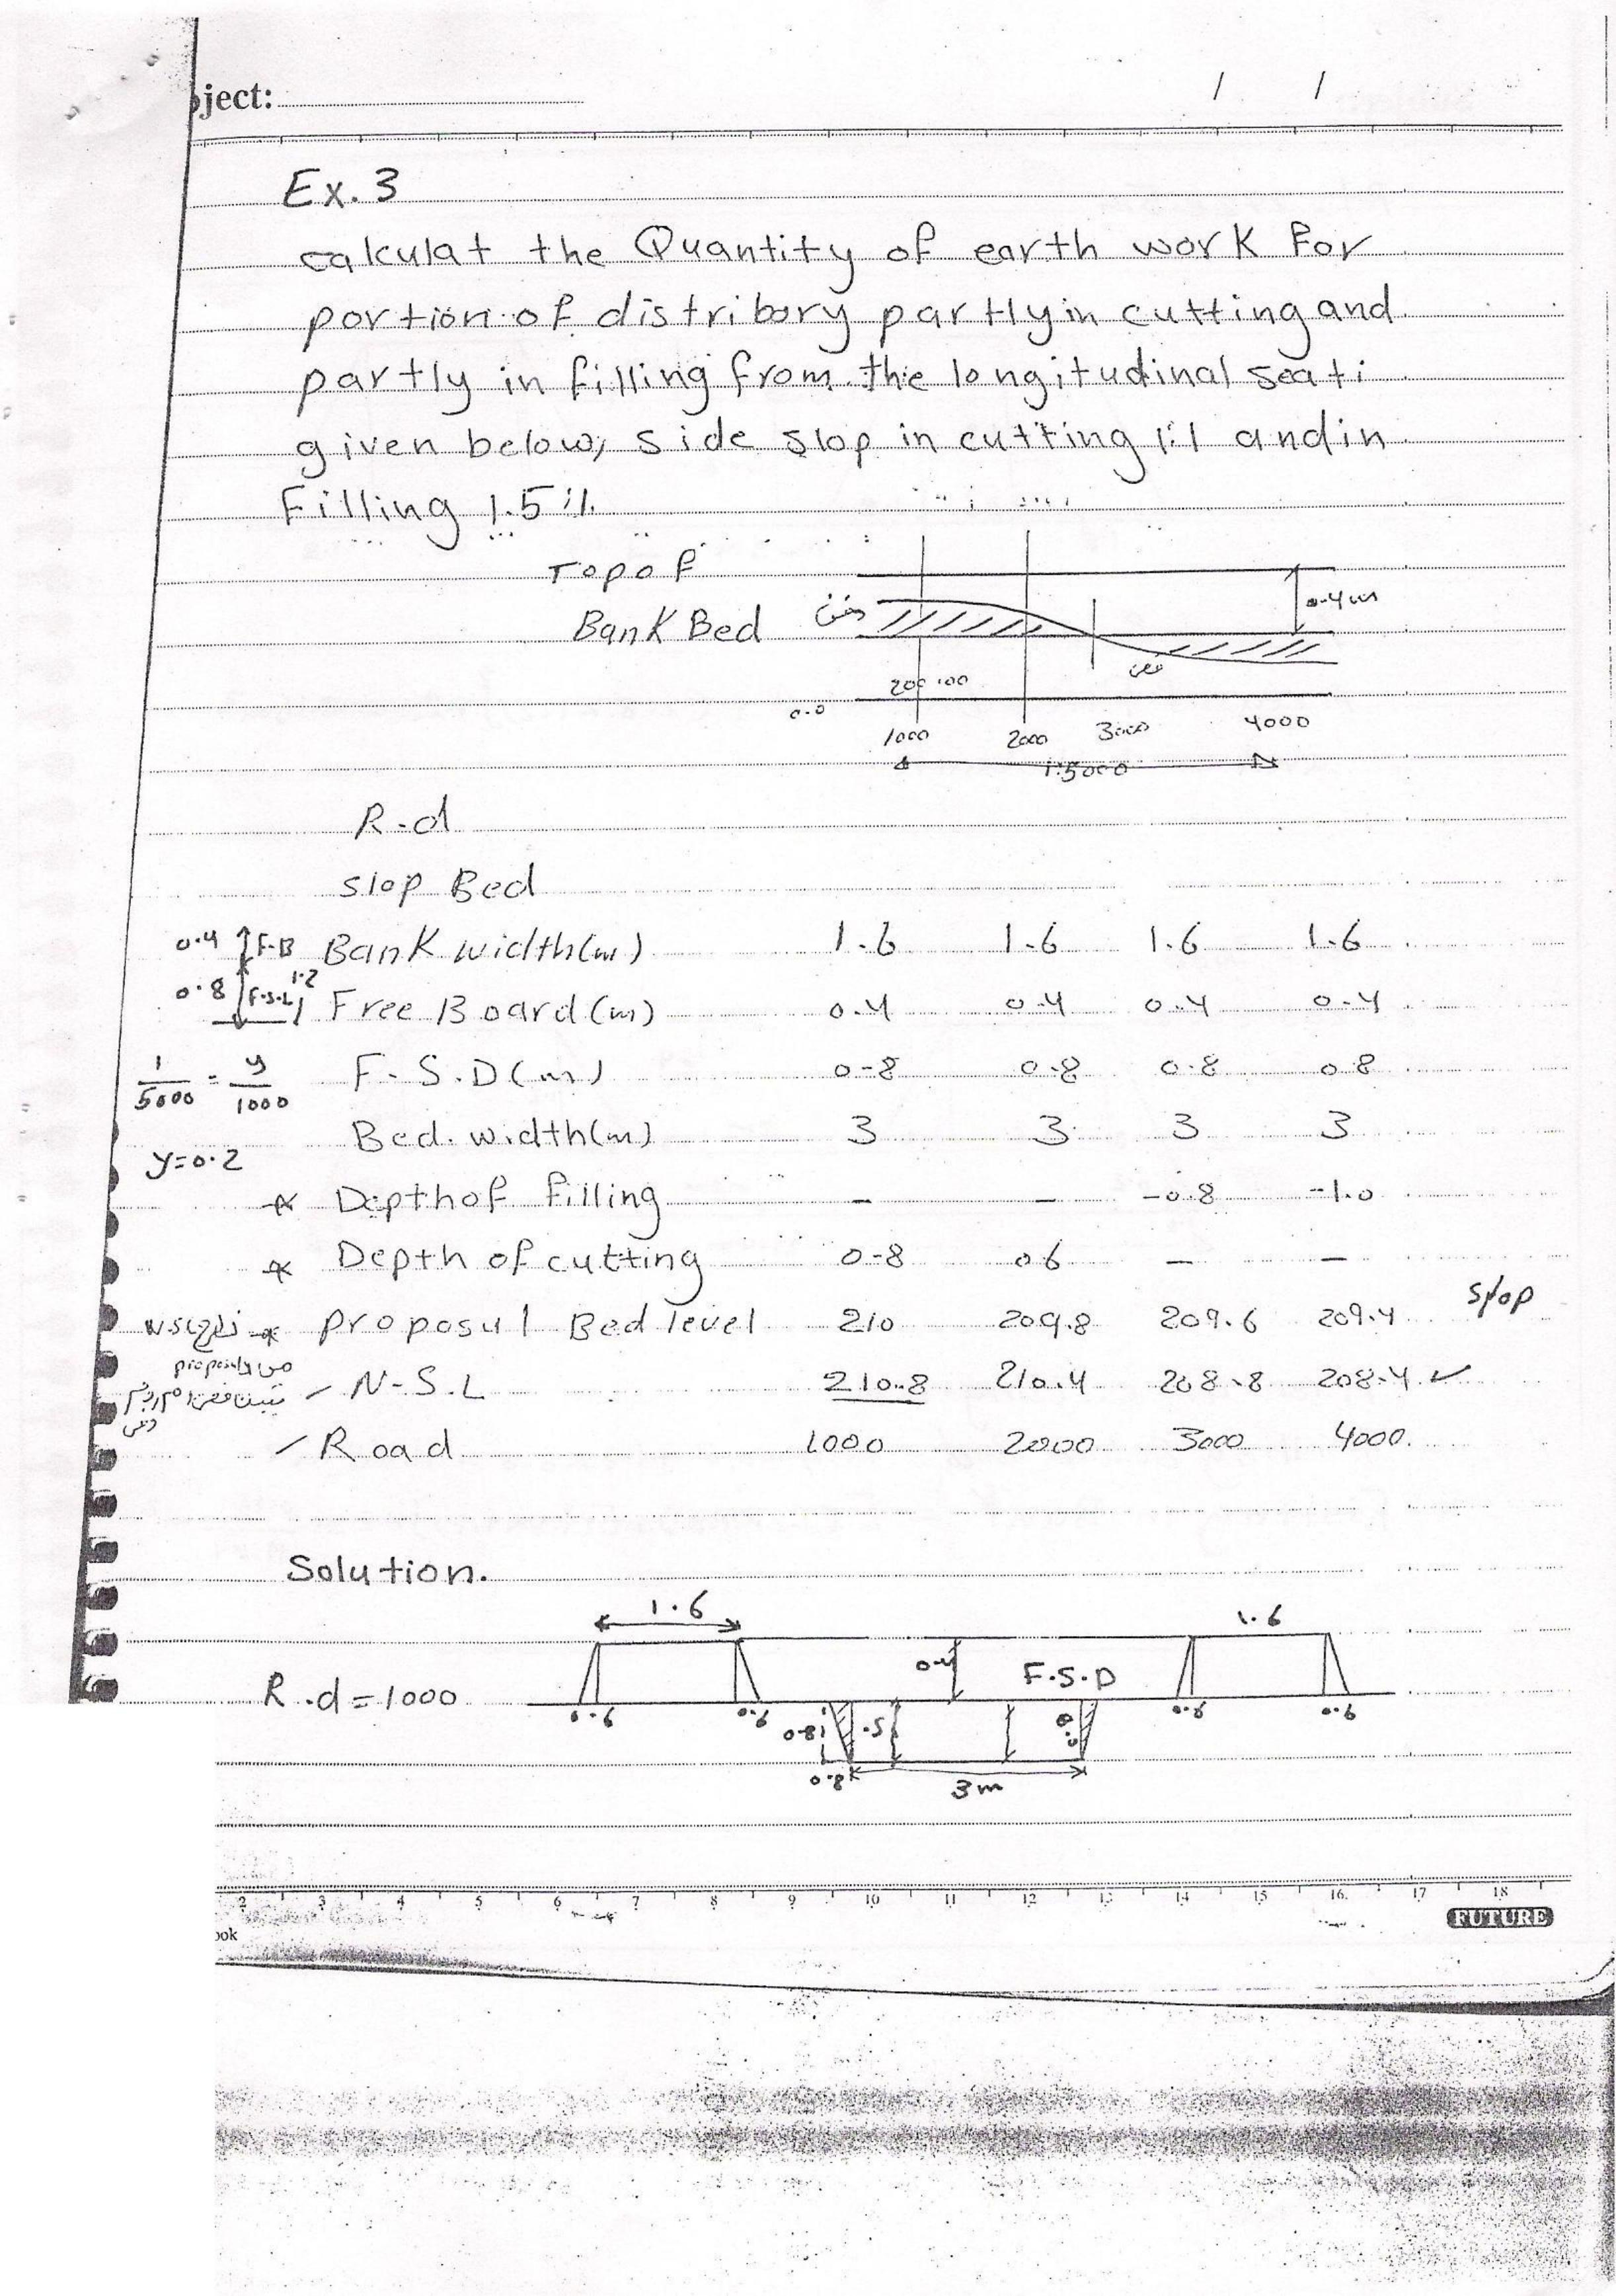 bject:
/ /
Ex. 3
calculat the Quantity of earth work for
portion of distribory partly in cutting and
partly in filling from the longitudinal seati
given below, side slop in cutting 1:1 and in
Filling 1.5:1.
Top of
Bank Bed
دفن
0.4m
200 100
0.0
1000 2000 3000 4000
1:5000
R.d
slop Bed
0.4 F.B Bank width(m) 1.6 1.6 1.6 1.6
0.8 F.S.L 1.2 Free Board (m) 0.4 0.4 0.4 0.4
1/5000 = y/1000 F.S.D(m) 0.8 0.8 0.8 0.8
Bed. width(m) 3 3 3 3
y=0.2
* Depth of filling - - -0.8 -1.0
* Depth of cutting 0.8 0.6 - -
N.S.L * proposul Bed level 210 209.8 209.6 209.4 slop
- N-S.L 210.8 210.4 208.8 208.4 ✓
- Road 1000 2000 3000 4000.
Solution.
1.6 1.6
R.d=1000 0.4 F.S.D
0.6 0.6 0.6 0.6
0.8 .5
0.8 3m
2 3 4 5 6 7 8 9 10 11 12 13 14 15 16 17 18
FUTURE
ook